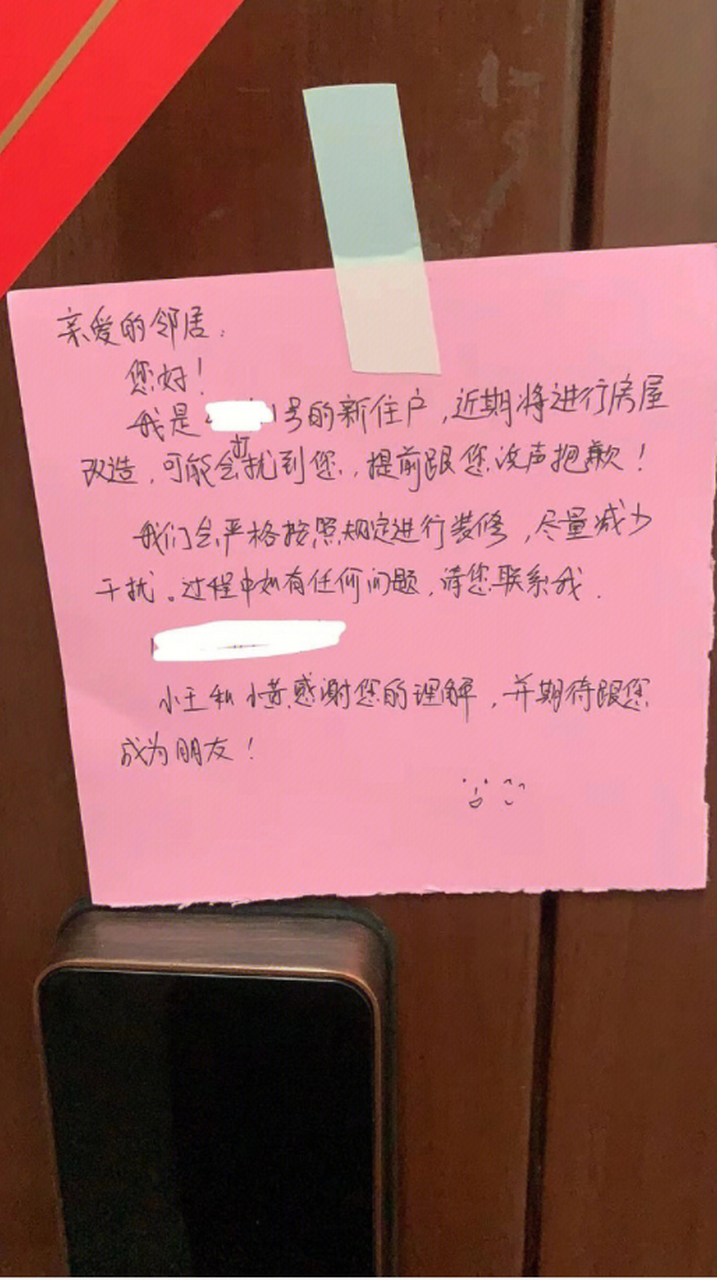 亲爱的邻居：
您好！
我是1号的新住户，近期将进行房屋
改造，可能会打扰到您，提前跟您说声抱歉！
我们会严格按照规定进行装修，尽量减少
干扰。过程中如有任何问题，请您联系我.
小王和小黄感谢您的理解，并期待跟您
成为朋友！